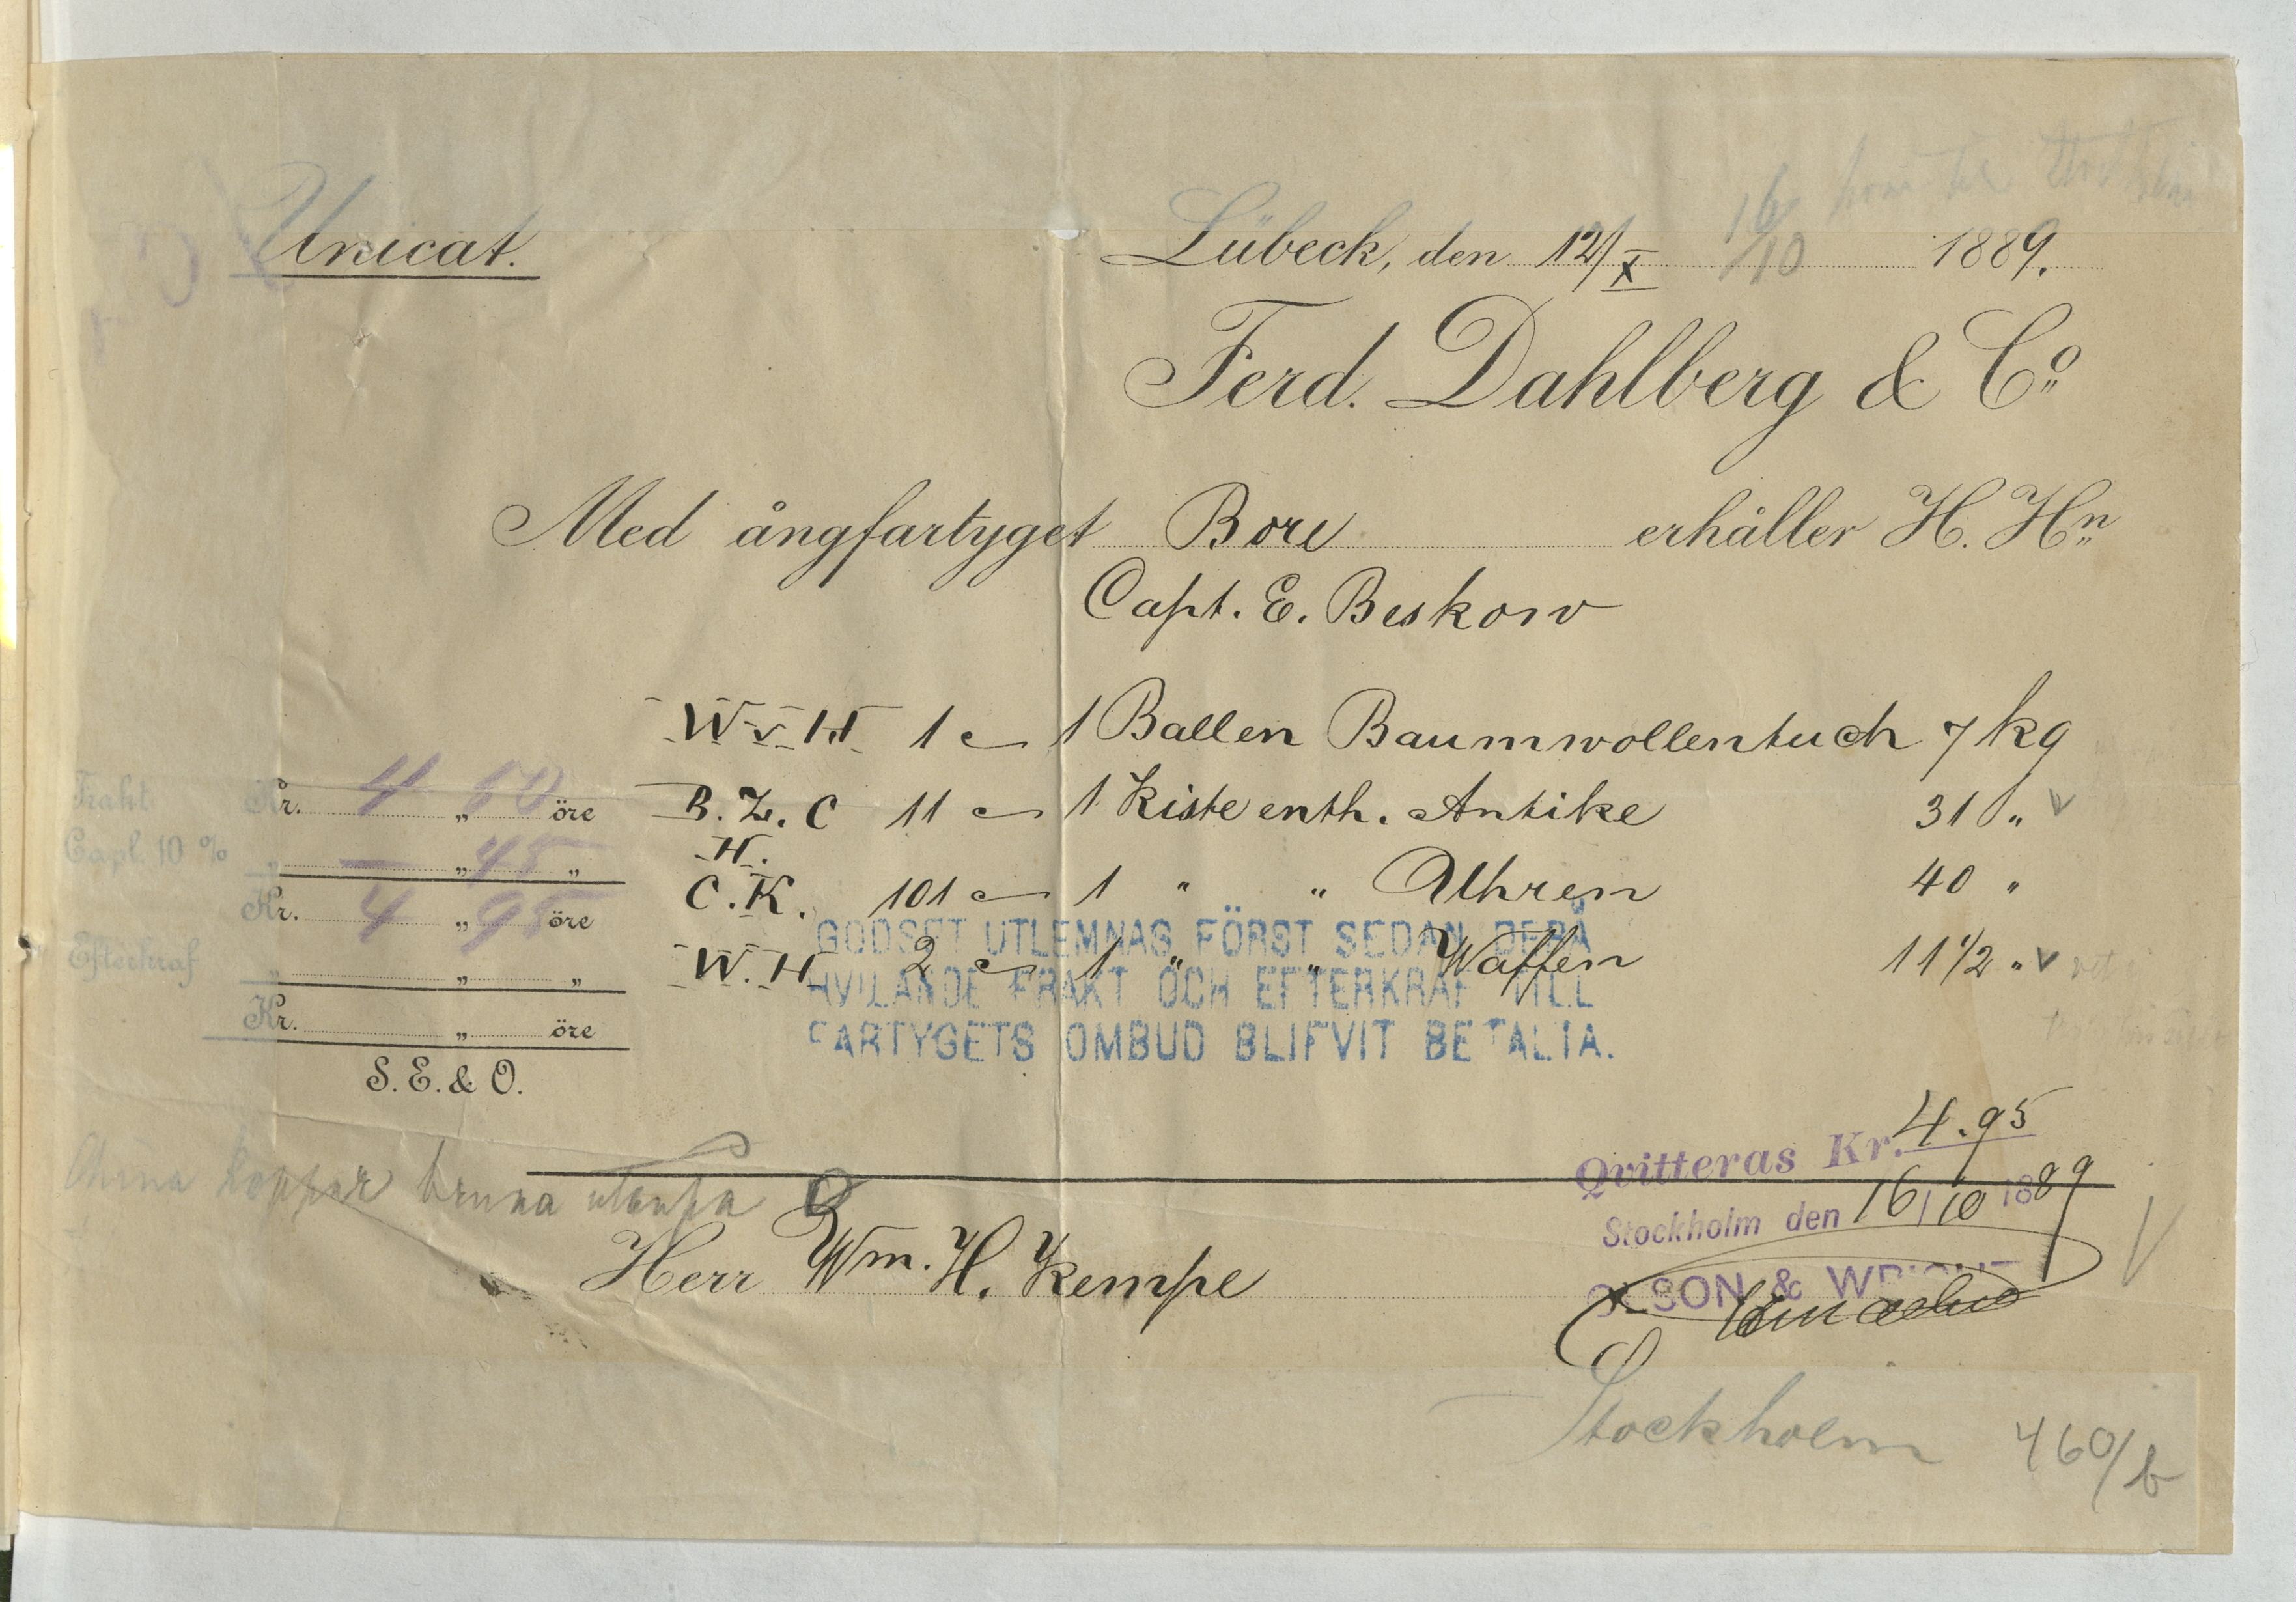 Unicat.
Lübeck, den 12/X 16/10 1889.
Ferd. Dahlberg & Co
Med ångfartyget Bore erhåller H. Hn
Capt. E. Beskow
W v H 1 1 Ballen Baumwollentuch 7 kg
Frakt Kr. 4 „ 50 öre
B. Z. C 11 1 Kiste enth. Antike 31 „ v
Capl. 10 % „ — „ 45 „
H.
C. K. 101 1 " " Uhren 40 "
Kr. 4 „ 95 öre
W. H 2 1 " " Waffen 11 1/2 " v
Efterkraf „ „ „
Kr. „ öre
S. E. & O.
GODSET UTLEMNAS FÖRST SEDAN DERÅ
HVILANDE FRAKT OCH EFTERKRAF TILL
FARTYGETS OMBUD BLIFVIT BETALTA.
Qvitteras Kr. 4.95
Stockholm den 16/10 1889
OLSON & WRIGHT
koppar bruna
Herr Wm. H. Kempe
Stockholm 460/b